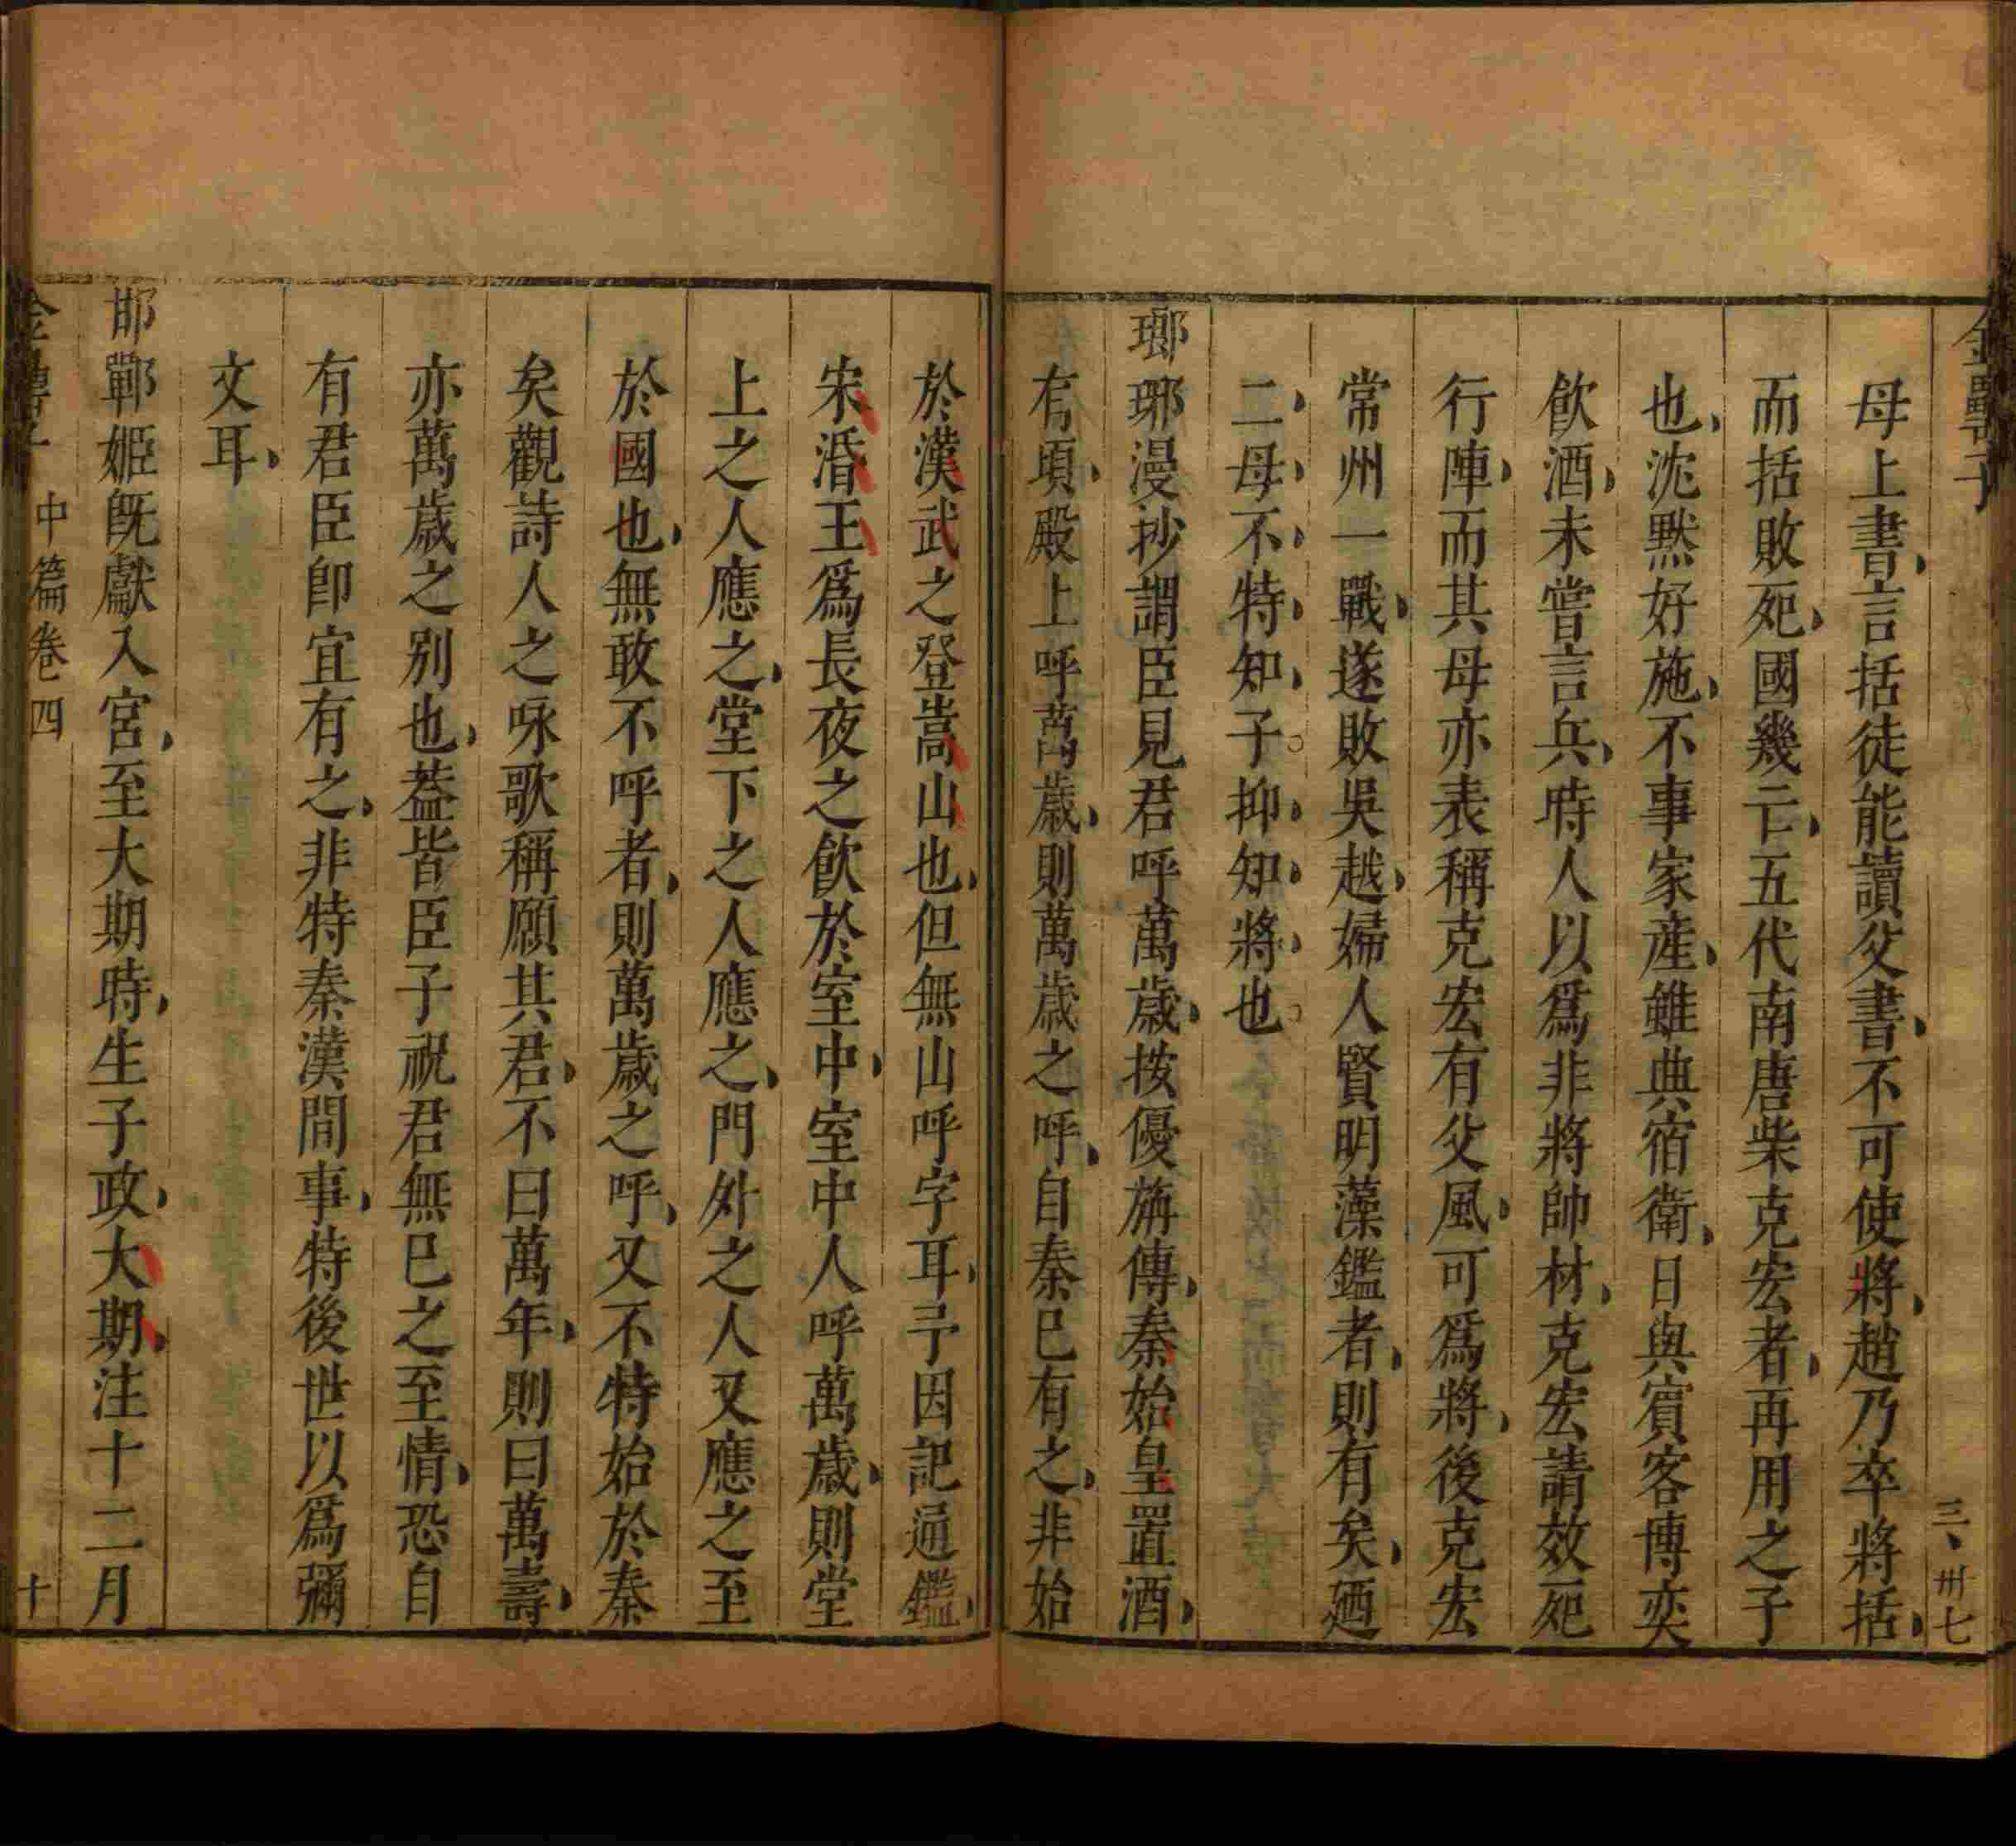 金罍子
三、卅七
母上書言括徒能讀父書不可使將趙乃卒將括
而括敗死國幾亡五代南唐柴克宏者再用之子
也沈默好施不事家産雖典宿衛日與賓客博奕
飲酒未嘗言兵時人以爲非將帥材克宏請效死
行陣而其母亦表稱克宏有父風可爲將後克宏
常州一戰遂敗吳越婦人賢明藻鑑者則有矣廼
二母不特知子抑知將也
瑯琊漫抄謂臣見君呼萬歲按優旃傳秦始皇置酒
有頃殿上呼萬歲則萬歲之呼自秦巳有之非始
於漢武之登嵩山也但無山呼字耳予因記通鑑
宋湣王爲長夜之飲於室中室中人呼萬歲則堂
上之人應之堂下之人應之門外之人又應之至
於國也無敢不呼者則萬歲之呼又不特始於秦
矣觀詩人之咏歌稱願其君不曰萬年則曰萬壽
亦萬歲之別也蓋皆臣子祝君無巳之至情恐自
有君臣卽宜有之非特秦漢間事特後世以爲彌
文耳
邯鄲姬旣獻入宮至大期時生子政大期注十二月
金罍子 中篇卷四 十